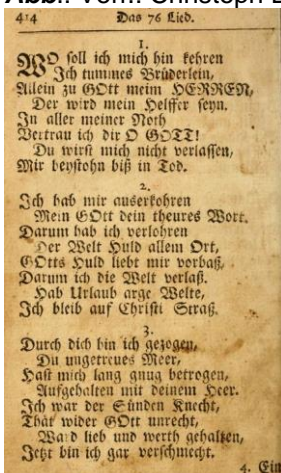 Abb.: Vorn: Christoph
414 Das 76 Lied.
1.
WO soll ich mich hin kehren
Ich tummes Brüderlein,
Allein zu GOtt meim HERREN,
Der wird mein Helffer seyn.
In aller meiner Noth
Vertrau ich dir O GOTT!
Du wirst mich nicht verlassen,
Mir beystohn biß in Tod.
2.
Ich hab mir auserkohren
Mein GOtt dein theures Wort.
Darum hab ich verlohren
Der Welt Huld allem Ort,
GOtts Huld liebt mir vorbaß,
Darum ich die Welt verlaß.
Hab Urlaub arge Welte,
Ich bleib auf Christi Straß.
3.
Durch dich bin ich gezogen,
Du ungetreues Meer,
Hast mich lang gnug betrogen,
Aufgehalten mit deinem Heer.
Ich war der Sünden Knecht,
That wider GOtt unrecht,
Ward lieb und werth gehalten,
Jetzt bin ich gar verschmecht.
4. Ein